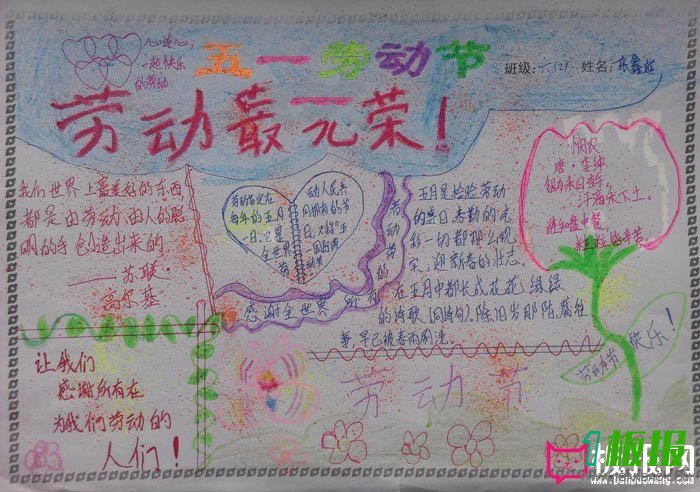 心连心，
一起快乐
的劳动
五一劳动节
班级：六(2) 姓名：张鑫
劳动最光荣！
我们世界上最美好的东西
都是由劳动、由人的聪
明的手创造出来的
——苏联
高尔基
劳动节定在
每年的五月
一日，它是
全世界
劳
动人民共
同拥有的节
日，又称"五
一国际劳
动节
感谢全世界所有的劳动者
五月是检验劳动
的季日春勤的光
将一切都那么现
实，迎新春的壮志，
在五月中都长成花花绿绿
的诗歌（同诗句），除旧岁那陈腐往
事，早已被春雨刷洗。
悯农
唐 李绅
锄禾日当午，
汗滴禾下土。
谁知盘中餐
粒粒皆辛苦。
让我们
感谢所有在
为我们劳动的
人们！
劳动节
劳动节快乐！
1板报
板报网
www.banbaowang.com